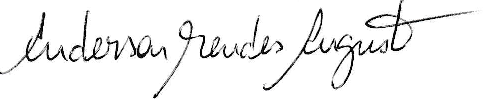 Anderson Mendes August